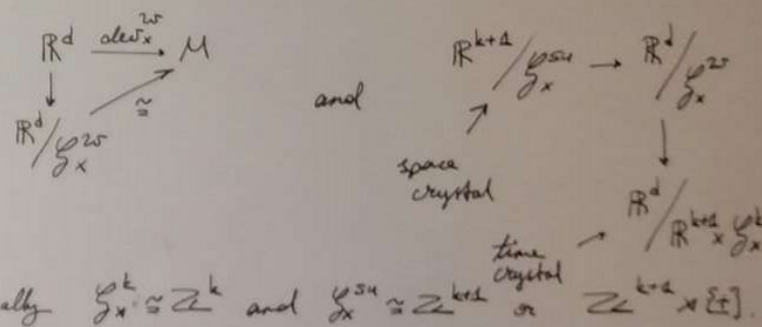 ℝ^d → dev_x^w → M
ℝ^d / 𝒢_x^w ≅
and
ℝ^{k+1} / 𝒢_x^{su} → ℝ^d / 𝒢_x^w
space
crystal
time
crystal
ℝ^d / ℝ^{k+1} × 𝒢_x^k
ally 𝒢_x^k ≅ ℤ^k and 𝒢_x^{su} ≅ ℤ^{k+1} or ℤ^{k+1} ⋊ {±}.